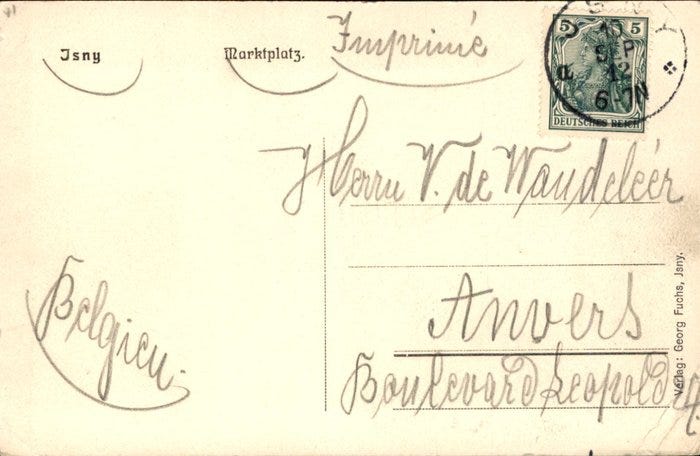 Isny
Marktplatz.
Imprimé
5 5
DEUTSCHES REICH
15
SEP
12
6-7N
a
Herrn V. de Wandeleér
Anvers
Boulevard Leopold
Belgien.
Verlag: Georg Fuchs, Jsny.